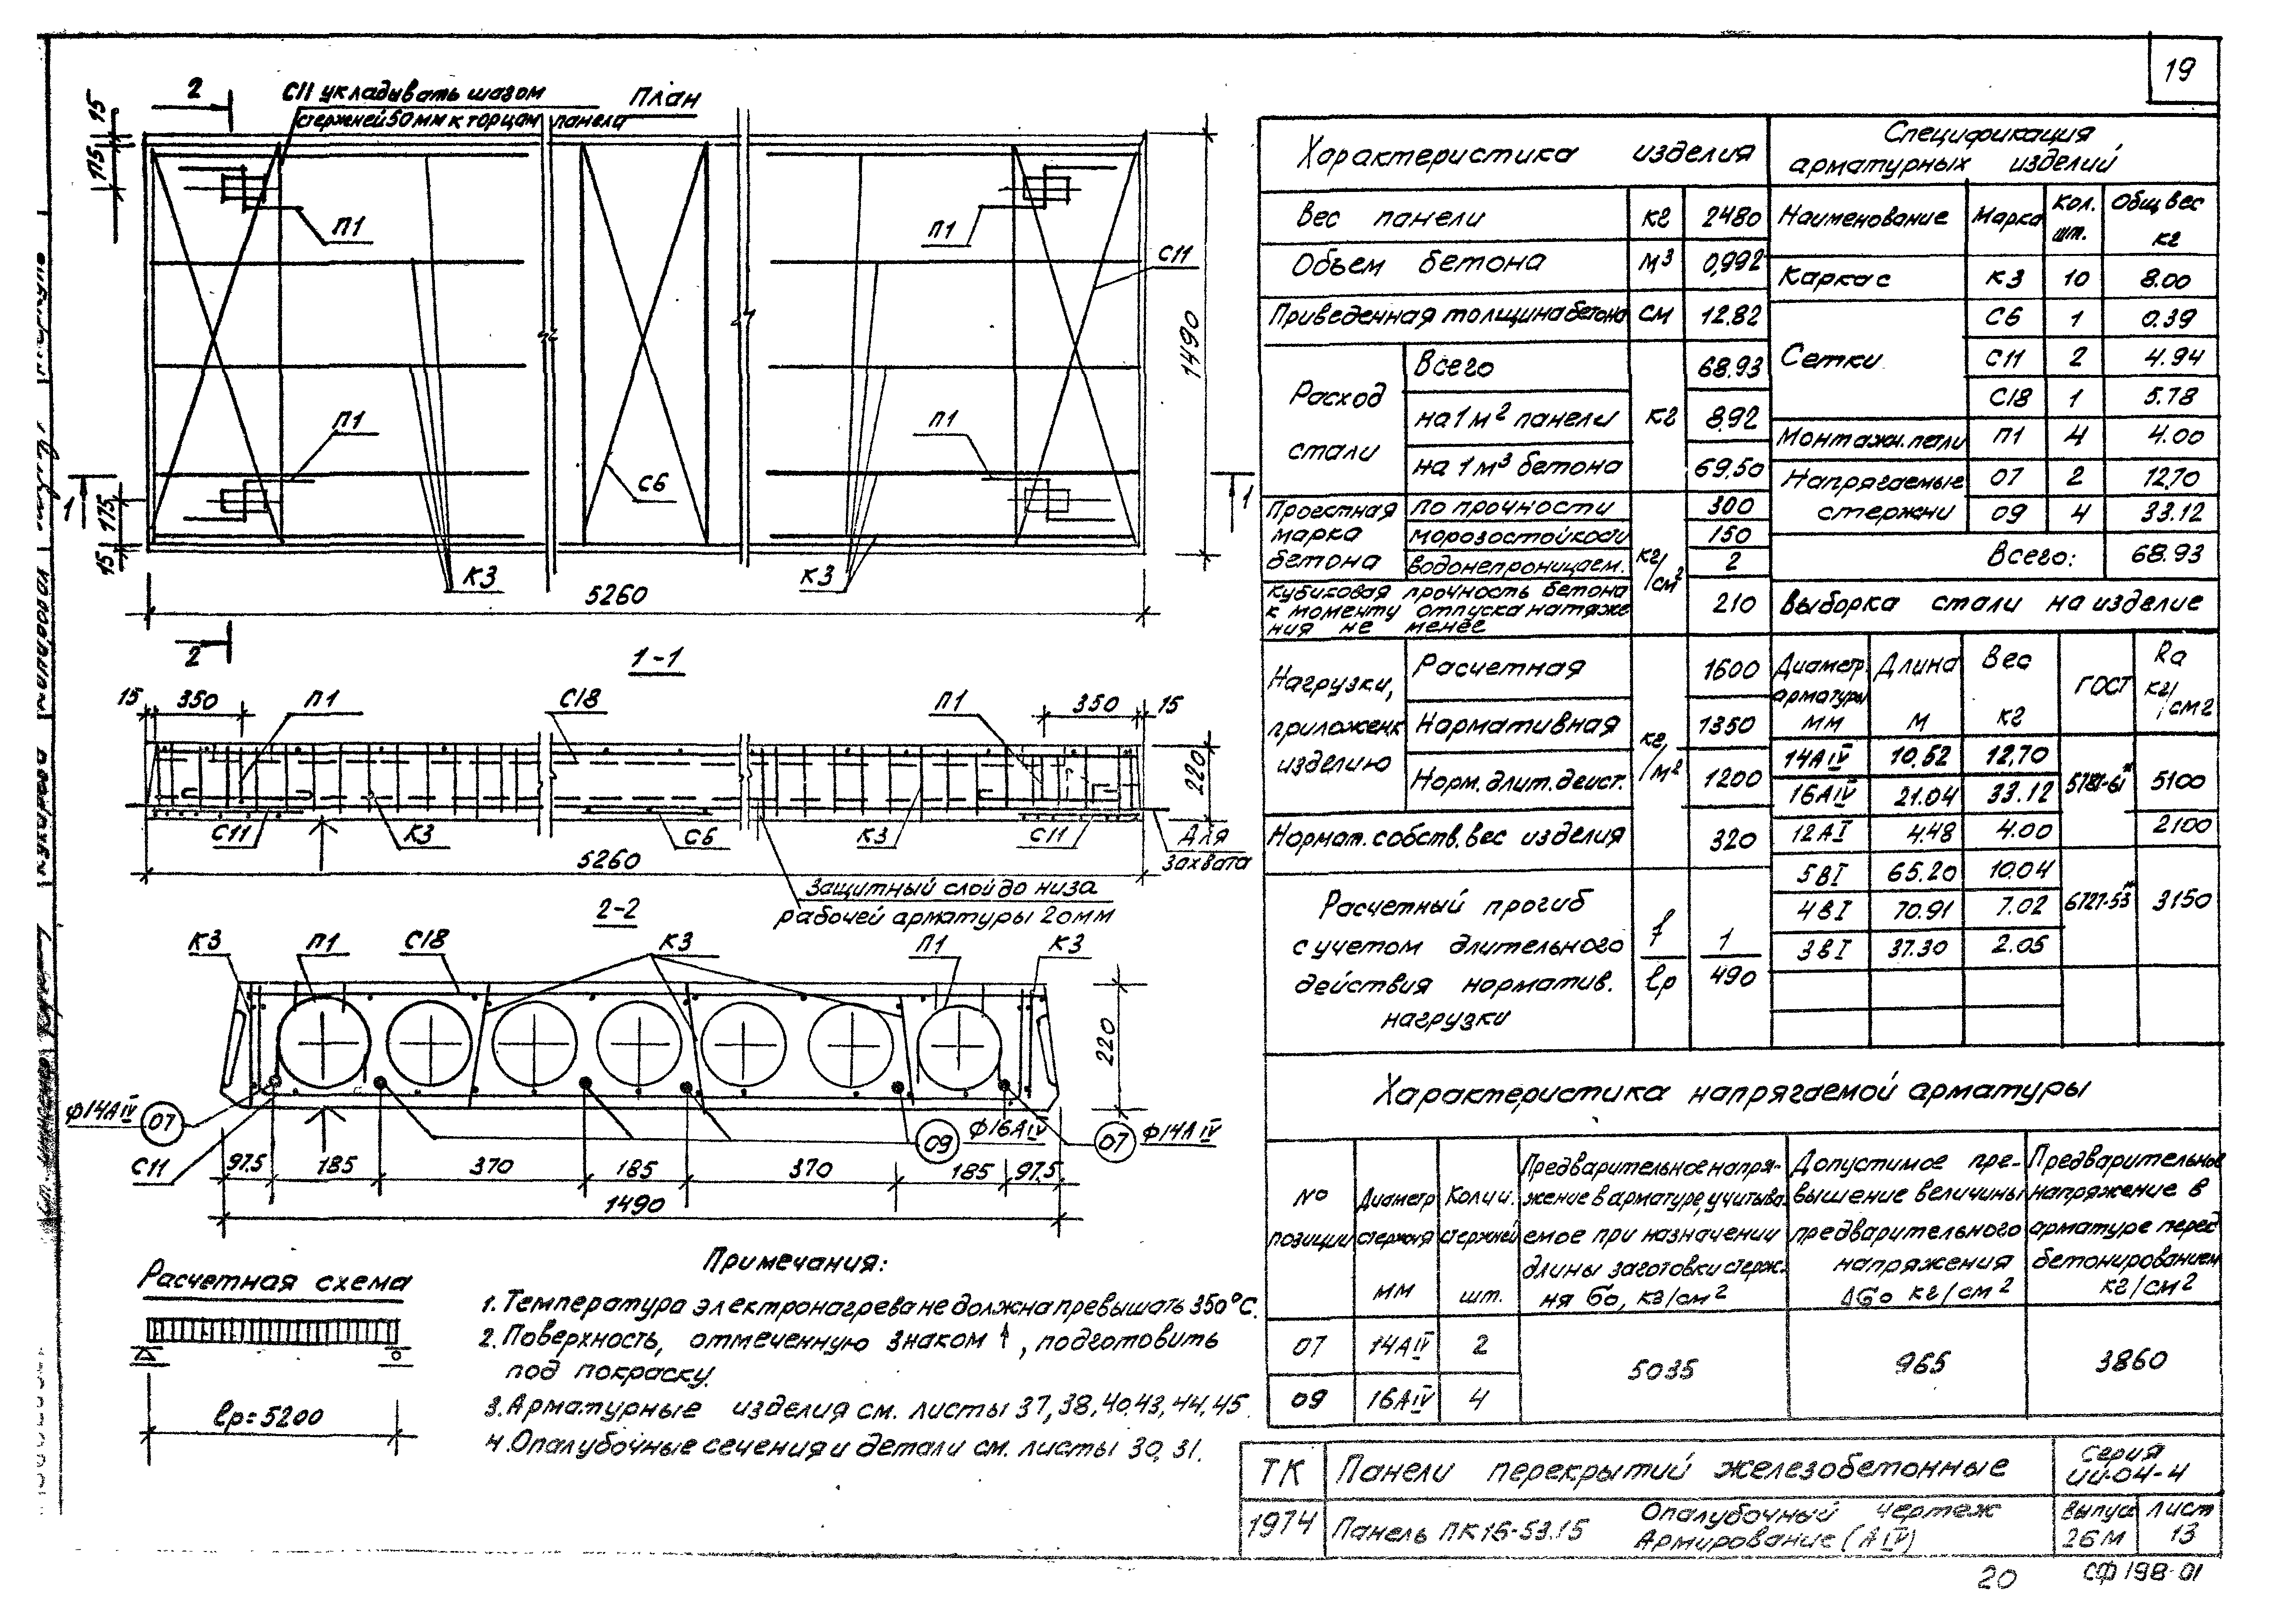 19
2
С11 укладывать шагом
стержней 50мм к торцам панела
План
15
175
П1
П1
С11
1490
П1
П1
С6
1
1
175
15
К3
К3
5260
2
1-1
15
350
П1
С18
П1
350
15
220
С11
К3
С6
К3
С11
Для
захвата
5260
Защитный слой до низа
рабочей арматуры 20мм
2-2
К3
П1
С18
К3
П1
К3
220
ф14АIV
07
С11
09
ф16АIV
07
ф14АIV
97.5
185
370
185
370
185
97.5
1490
Расчетная схема
lр=5200
Примечания:
1. Температура электронагрева не должна превышать 350°С.
2. Поверхность, отмеченную знаком ↑, подготовить
под покраску.
3. Арматурные изделия см. листы 37, 38, 40, 43, 44, 45.
4. Опалубочные сечения и детали см. листы 30, 31.
Характеристика изделия
Вес панели кг 2480
Объем бетона м3 0,992
Приведенная толщина бетона см 12.82
Расход стали
кг
Всего 68.93
на 1м2 панели 8,92
на 1м3 бетона 69,50
Проектная марка бетона
кг/см2
по прочности 300
морозостойкости 150
водонепроницаем. 2
Кубиковая прочность бетона
к моменту отпуска натяже
ния не менее
210
Нагрузки, приложенн изделию
кг/м2
Расчетная 1600
Нормативная 1350
Норм. длит. деист. 1200
Нормат. собств. вес изделия 320
Расчетный прогиб
с учетом длительного
действия норматив.
нагрузки
f/lр
1/490
Спецификация
арматурных изделий
Наименование Марка Кол. шт. Общ вес кг
Каркас К3 10 8.00
Сетки
С6 1 0.39
С11 2 4.94
С18 1 5.78
Монтажн. петли П1 4 4.00
Напрягаемые 07 2 12,70
стержни 09 4 33.12
Всего: 68.93
Выборка стали на изделие
Диаметр. арматуры мм
Длина м
Вес кг
ГОСТ
Rа кг/см2
14АIV 10.52 12,70
16АIV 21.04 33.12
5781-61* 5100
12АI 4.48 4.00 2100
5ВI 65.20 10.04
4ВI 70.91 7.02
6727-53* 3150
3ВI 37.30 2.05
Характеристика напрягаемой арматуры
№ позиции
Диаметр стержня мм
Колич. стержней шт.
Предварительное напря-
жение в арматуре, учитыва-
емое при назначении
длины заготовки стерж-
ня бо, кг/см2
Допустимое пре-
вышение величины
предварительного
напряжения
Δбо кг/см2
Предварительное
напряжение в
арматуре перед
бетонированием
кг/см2
07 14АIV 2
09 16АIV 4
5035 965 3860
ТК
Панели перекрытий железобетонные
Серия
ИИ-04-4
1974
Панель ПК16-53.15
Опалубочный чертеж
Армирование (АIV)
Выпуск
26М
Лист
13
20
СФ 198-01